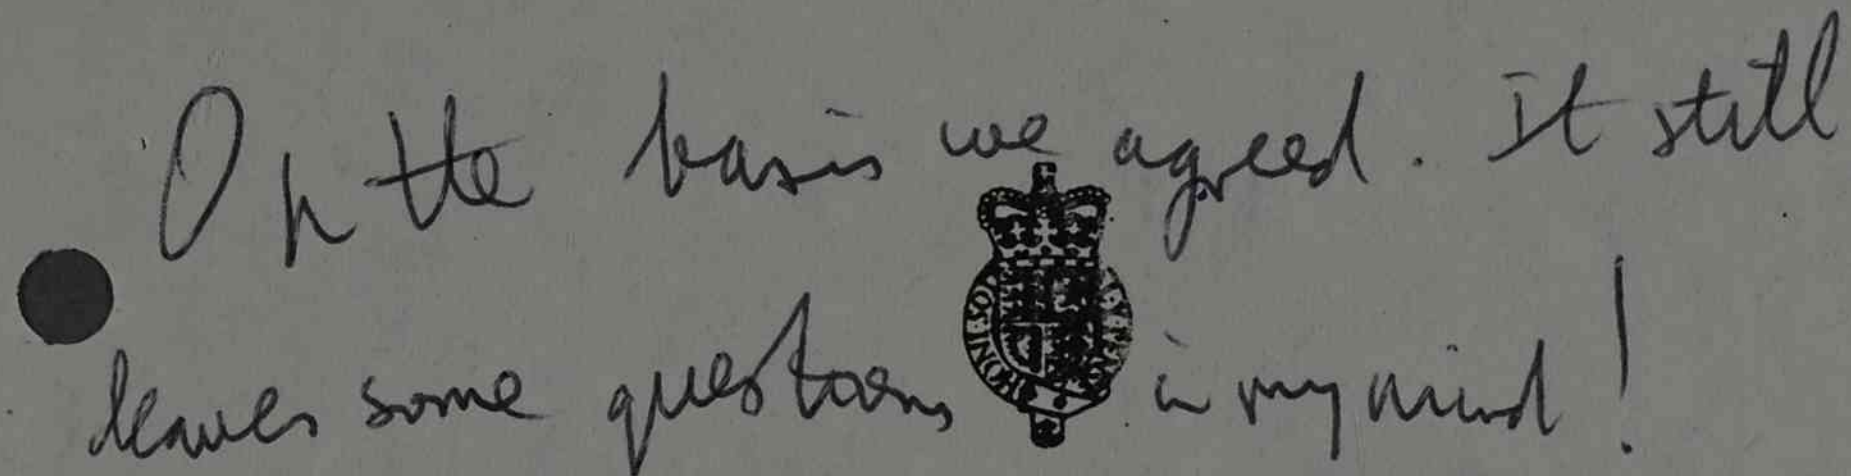 On the basis we agreed. It still
leaves some questions in my mind!